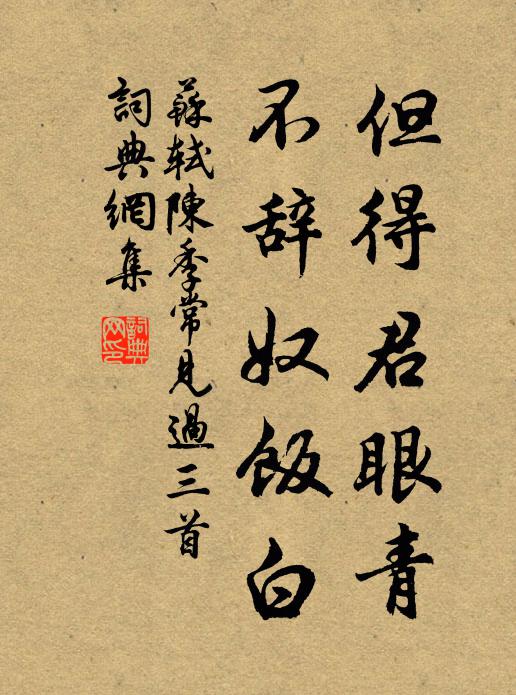 但得君眼青
不辞奴飯白
蘇軾陳季常見過三首
詞典網集
詞典网印